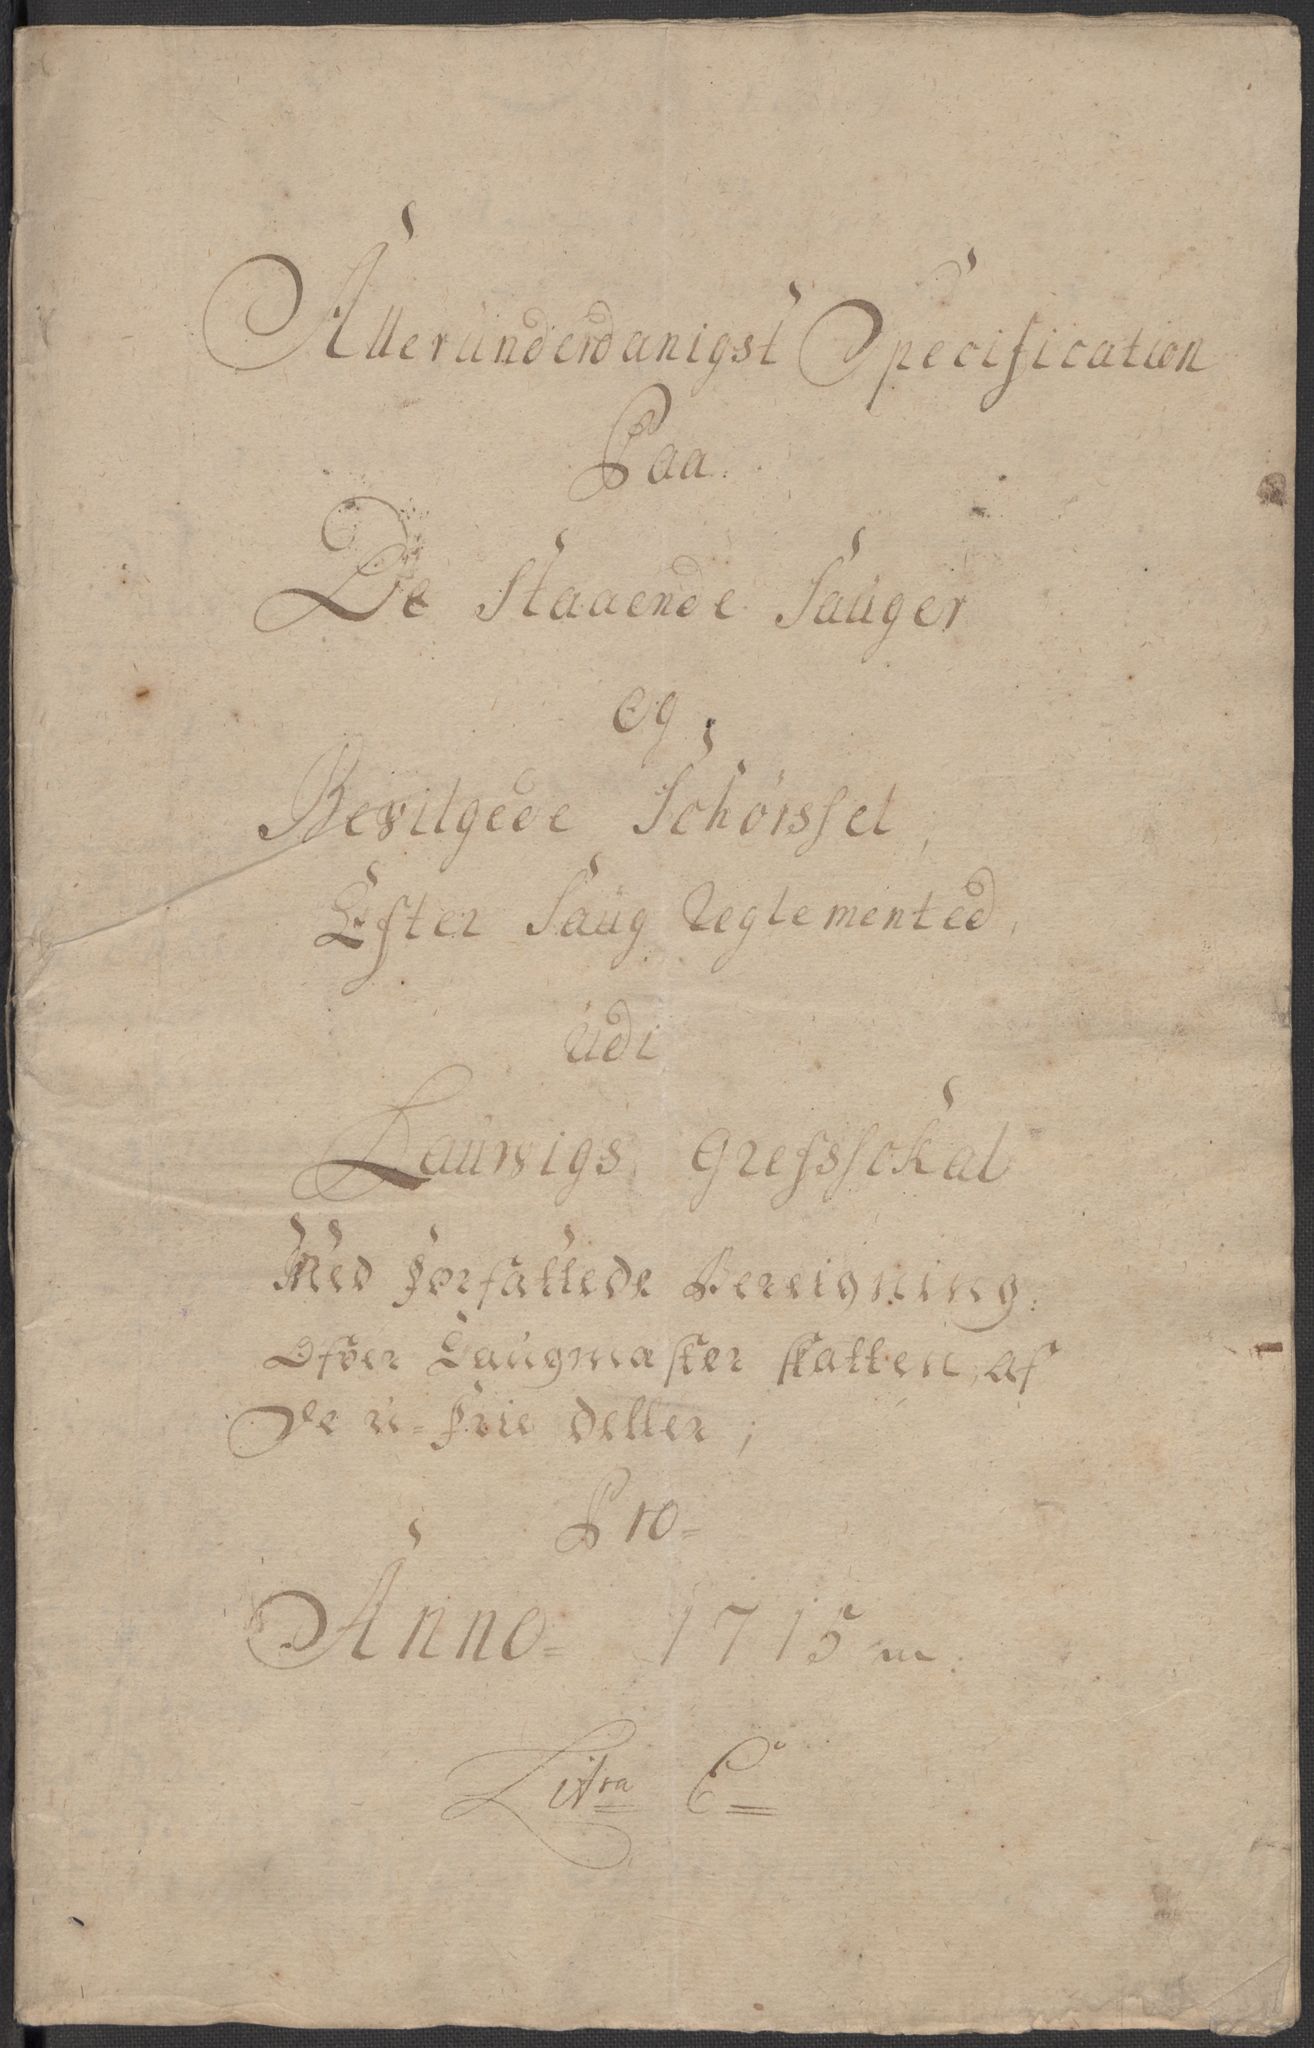 Allerunderdanigst Specification
Paa
De Staaende Sauger
Og
Bevilgede Schørssel,
Efter Saug Reglemented,
Udi
Laurvigs Grefsschal
Med forfattede Bereigning
Ofver Saugmæster skatten, af
De u-frie deller;
Pro=
Anno= 1715
Litra C=